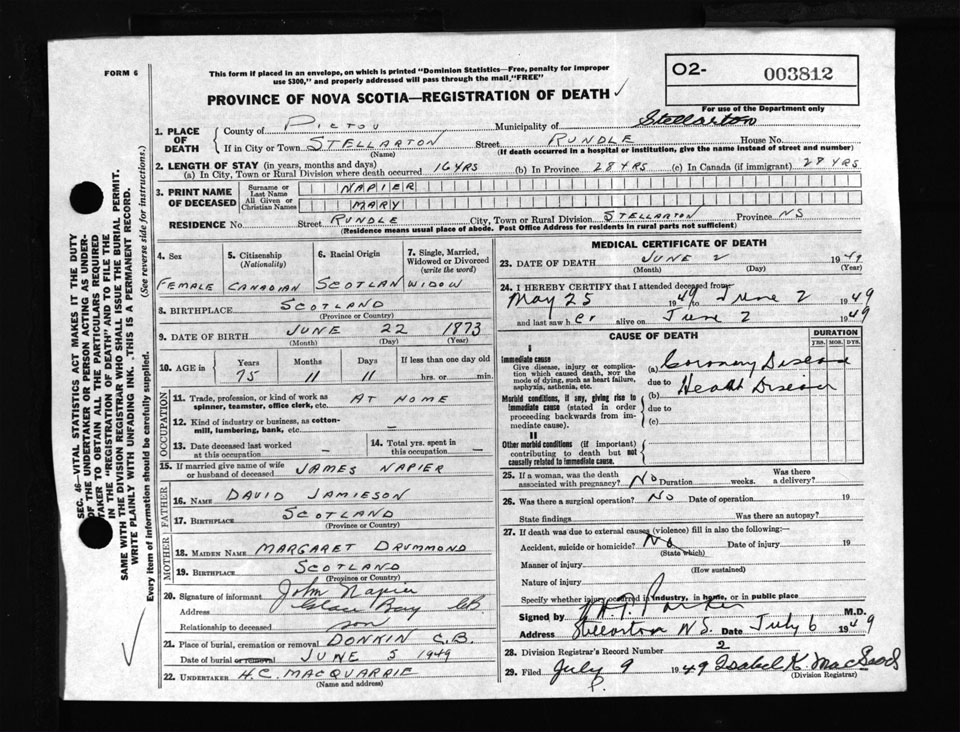 FORM 6
This form if placed in an envelope, on which is printed "Dominion Statistics—Free, penalty for improper
use $300," and properly addressed will pass through the mail "FREE"
PROVINCE OF NOVA SCOTIA—REGISTRATION OF DEATH ✓
O2- 003812
For use of the Department only
1. PLACE OF DEATH
County of PICTOU Municipality of Stellarton
If in City or Town STELLARTON Street RUNDLE House No.
(Name) (If death occurred in a hospital or institution, give the name instead of street and number)
2. LENGTH OF STAY (in years, months and days)
(a) In City, Town or Rural Division where death occurred 16 YRS (b) In Province 28 YRS (c) In Canada (if immigrant) 28 YRS
3. PRINT NAME OF DECEASED
Surname or Last Name NAPIER
All Given or Christian Names MARY
RESIDENCE No. Street RUNDLE City, Town or Rural Division STELLARTON Province NS
(Residence means usual place of abode. Post Office Address for residents in rural parts not sufficient)
4. Sex 5. Citizenship (Nationality) 6. Racial Origin 7. Single, Married, Widowed or Divorced (write the word)
FEMALE CANADIAN SCOTLAN WIDOW
8. BIRTHPLACE SCOTLAND
(Province or Country)
9. DATE OF BIRTH JUNE 22 1873
(Month) (Day) (Year)
10. AGE in Years Months Days If less than one day old
75 11 11 hrs. or min.
OCCUPATION
11. Trade, profession, or kind of work as
spinner, teamster, office clerk, etc. AT HOME
12. Kind of industry or business, as cotton-
mill, lumbering, bank, etc. —
13. Date deceased last worked
at this occupation — 14. Total yrs. spent in
this occupation —
15. If married give name of wife
or husband of deceased JAMES NAPIER
FATHER
16. NAME DAVID JAMIESON
17. BIRTHPLACE SCOTLAND
(Province or Country)
MOTHER
18. MAIDEN NAME MARGARET DRUMMOND
19. BIRTHPLACE SCOTLAND
(Province or Country)
20. Signature of informant John Napier
Address Glace Bay CB
Relationship to deceased son
21. Place of burial, cremation or removal DONKIN C.B.
Date of burial or removal JUNE 5 1949
22. UNDERTAKER H.C. MACQUARRIE
(Name and address)
MEDICAL CERTIFICATE OF DEATH
23. DATE OF DEATH JUNE 2 1949
(Month) (Day) (Year)
24. I HEREBY CERTIFY that I attended deceased from
May 25 1949 to June 2 1949
and last saw her alive on June 2 1949
CAUSE OF DEATH DURATION
YRS. MOS. DYS.
I
Immediate cause
Give disease, injury or complica-
tion which caused death, not the
mode of dying, such as heart failure,
asphyxia, asthenia, etc.
(a) Coronary Disease
due to Heart Disease
Morbid conditions, if any, giving rise to
immediate cause (stated in order
proceeding backwards from im-
mediate cause).
(b)
due to
(c)
II
Other morbid conditions (if important)
contributing to death but not
causally related to immediate cause.
25. If a woman, was the death
associated with pregnancy? No Duration weeks. Was there
a delivery?
26. Was there a surgical operation? No Date of operation 19
State findings Was there an autopsy?
27. If death was due to external causes (violence) fill in also the following:—
Accident, suicide or homicide? No Date of injury 19
(State which)
Manner of injury
(How sustained)
Nature of injury
Specify whether injury occurred in industry, in home, or in public place
Signed by Parker M.D.
Address Stellarton N.S. Date July 6 1949
28. Division Registrar's Record Number 2
29. Filed July 9 1949 Isabel K. MacLeod
(Division Registrar)
P.
SEC. 46— VITAL STATISTICS ACT MAKES IT THE DUTY
OF THE UNDERTAKER OR PERSON ACTING AS UNDER-
TAKER TO OBTAIN ALL THE PARTICULARS REQUIRED
IN THE "REGISTRATION OF DEATH" AND TO FILE THE
SAME WITH THE DIVISION REGISTRAR WHO SHALL ISSUE THE BURIAL PERMIT.
WRITE PLAINLY WITH UNFADING INK. THIS IS A PERMANENT RECORD.
Every item of information should be carefully supplied. (See reverse side for instructions.)